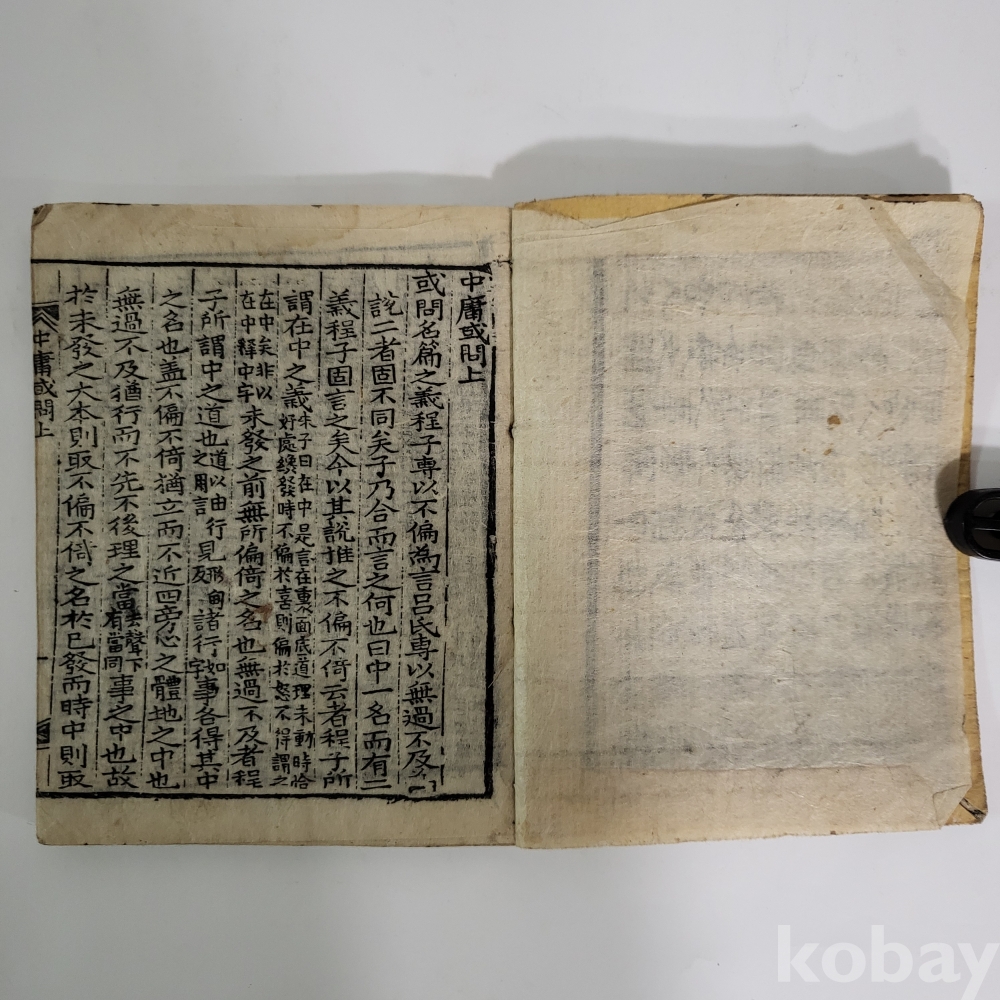 中庸或問上
或問名篇之義程子專以不偏為言呂氏專以無過不及為
說二者固不同矣子乃合而言之何也曰中一名而有二
義程子固言之矣今以其說推之不偏不倚云者程子所
謂在中之義朱子曰在中是言在裏面底道理未動時恰好處纔發時不偏於喜則偏於怒不得謂之
在中矣非以在中釋中字未發之前無所偏倚之名也無過不及者程
子所謂中之道也道以由行之用言見形甸反諸行如字事各得其中
之名也盖不偏不倚猶立而不近四旁心之體地之中也
無過不及猶行而不先不後理之當去聲下有當同事之中也故
於未發之大本則取不偏不倚之名於已發而時中則取
中庸或問上
kobay